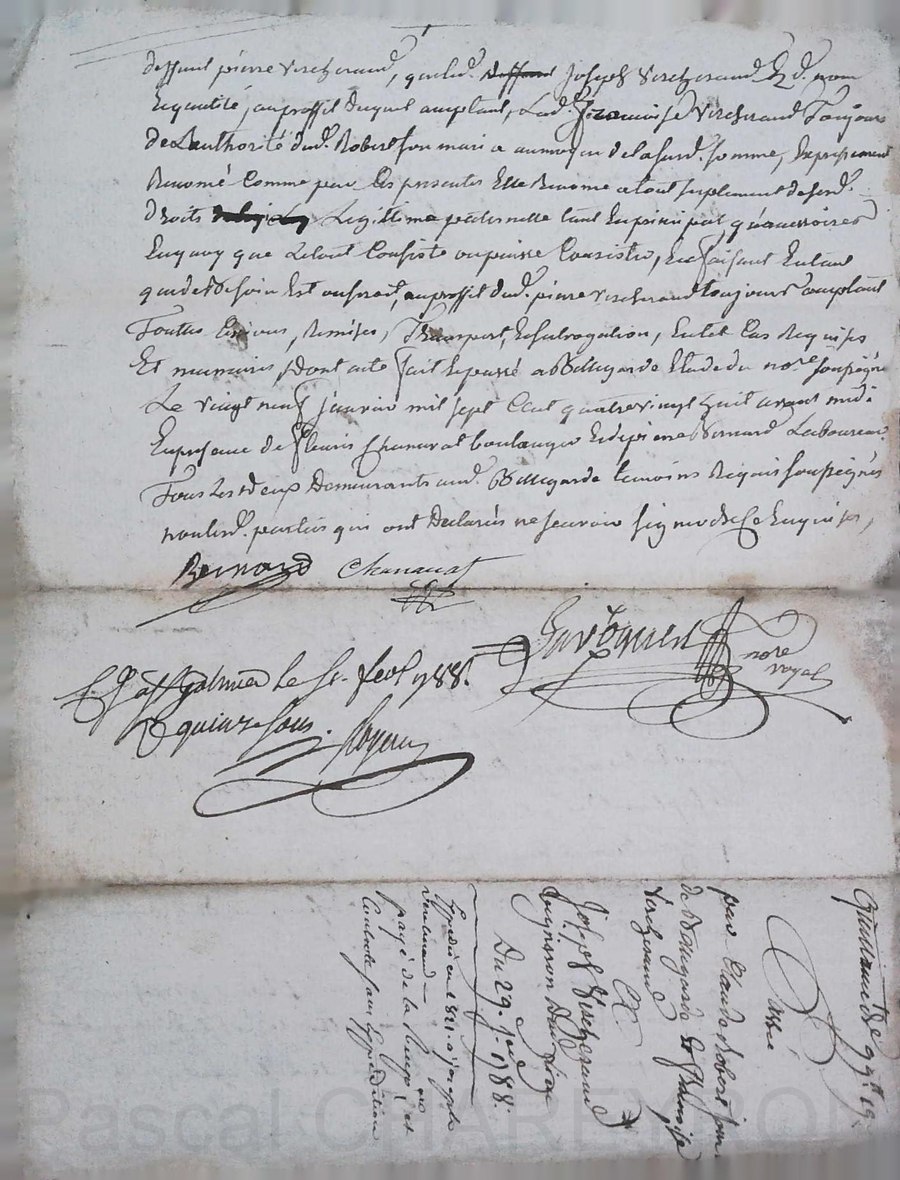 deffunt pierre vercherand, quelud. deffunt Joseph Vercherand Ez d. nom
Ez qualité, au proffit duquel acceptant, Lad. françoise Vercherand Toujours
de Lauthorité dud. Robert son mari a au moyen de la susd. somme, Expressement
Renoncé Comme par Ces presentes Elle Renonce a tout suplement de sesd.
droits Legitime paternelle tant En principal, qu'accessoires
En quoy que Letout Consiste ou puisse Consister, En faisant Entant
que de Besoin Est ou serait, au proffit dud. pierre vercherand toujours acceptant
Touttes Cessions, Remises, Transport, Et subrogation, En tel Cas Requises
Et necessaires, Dont acte fait Et passé a Bellegarde Etude du no.re soussigné
Le vingt neuf janvier mil sept Cent quatre vingt huit avant midi
En presence de fleuris Chanavat boulanger Et de pierre Bernard Laboureur
Tous Les deux Demeurants aud. Bellegarde temoins Requis soussignés
non Lesd. parties qui ont Declarés ne sçavoir signer de Ce Enquises,
Bernard Chanavat
no.re royal
C. a St galmier Le fev. 1788.
R quinze sous.
Quittance de 99.tt 19.s
Passée
par Claude Robert
de Bellegarde Et françoise
Vercherand
A
Joseph Vercherand
Du 29. Janv. 1788.
Expedié en 1821. a joseph
Vercherand
payé de la
Controlle sans Expedition
Pascal CHAREYRON